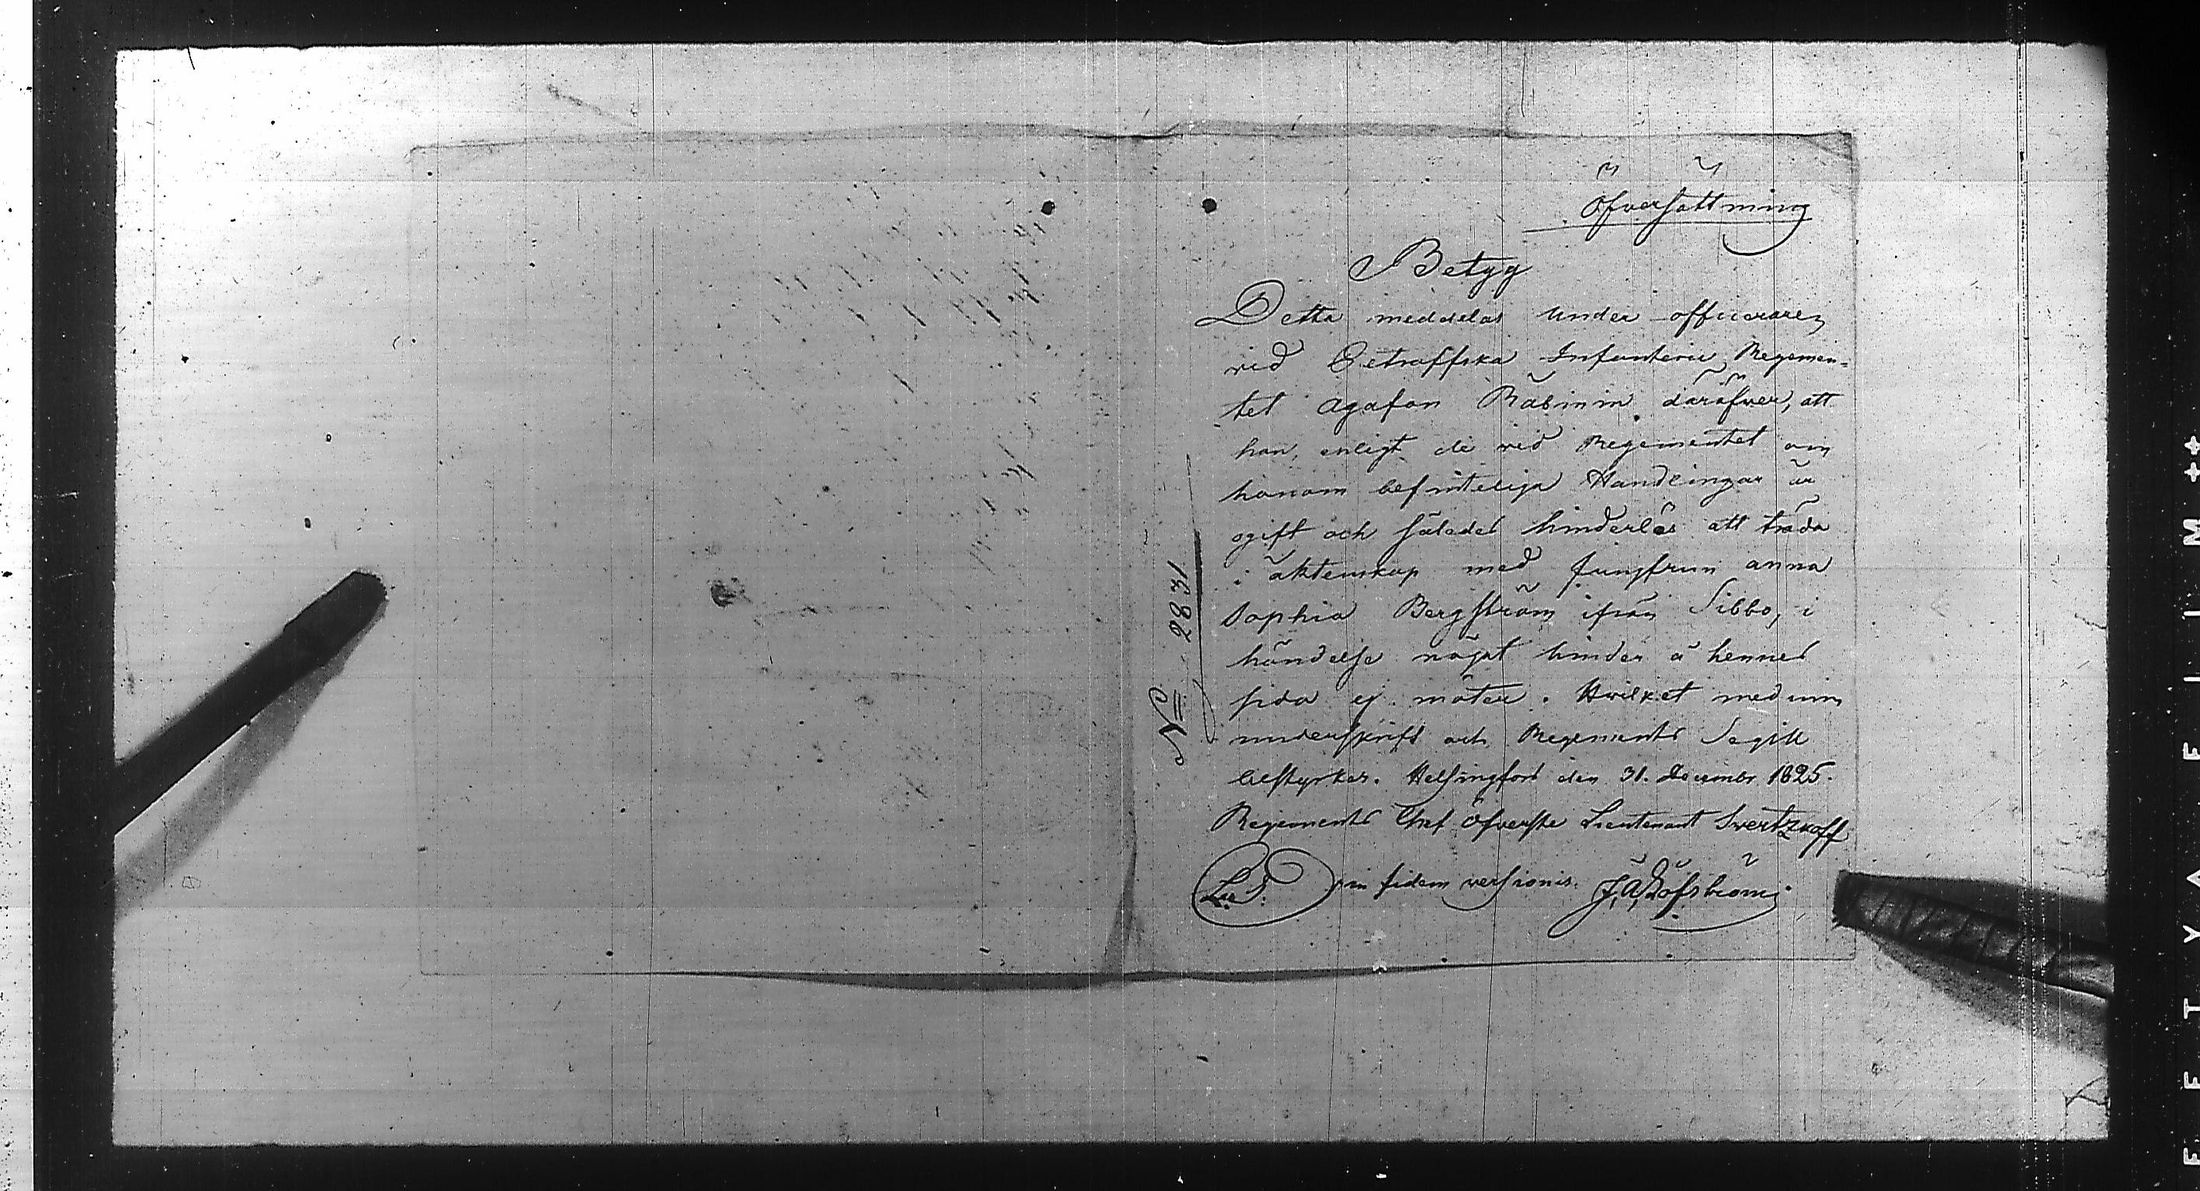 Öfversättning
Betyg
Detta meddelas under officeraren
vid Petroffska Infanterie Regemen-
tet Agafon Räbinin däröfver, att
han, enligt de vid Regementet om
honom befinteliga Handlingar är
ogift och således hinderlös att träda
i äktenskap med Jungfrun Anna
Sophia Bergström ifrån Sibbo, i
händelse något hinder å hennes
sida ej möter. Hvilket med min
underskrift och Regements Segill
bestyrkes. Helsingfors den 31. December 1825.
Regements Chef Öfverste Lieutenant Svertzkoff
L.S. in fidem versionis. J. A. Löfström
No 2831